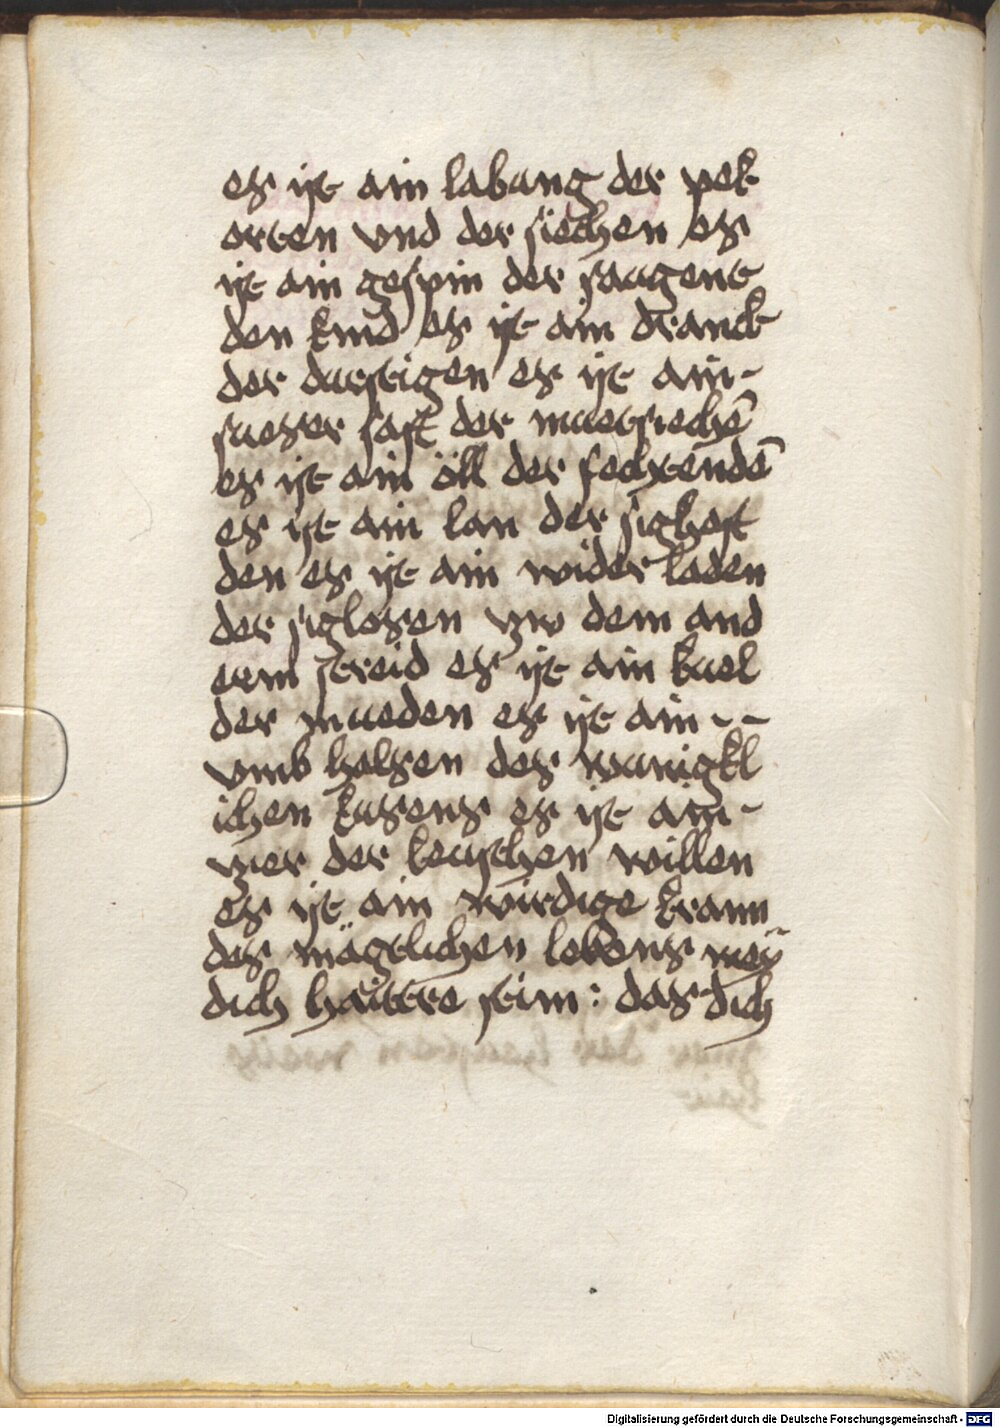 es ist ain labung der pek
erten vnd der siechen es
ist ain gespin der saugent
den kind es ist ain dranck
der durstigen es ist ain-
suesser saft der muetsiechē
es ist ain öll der fechtendē
es ist ain lan der sighaft
den es ist ain wider laden
der siglosen zw dem and
erm streid es ist ain kuel
der mueden es ist ain--
vmb halsen des wunigkl
ichen kusens es ist ain-
zier der keuschen willen
es ist ain wirdige kronn
des mägtlichen lebens
dich haitere sein: das dich
Digitalisierung gefördert durch die Deutsche Forschungsgemeinschaft - DFG